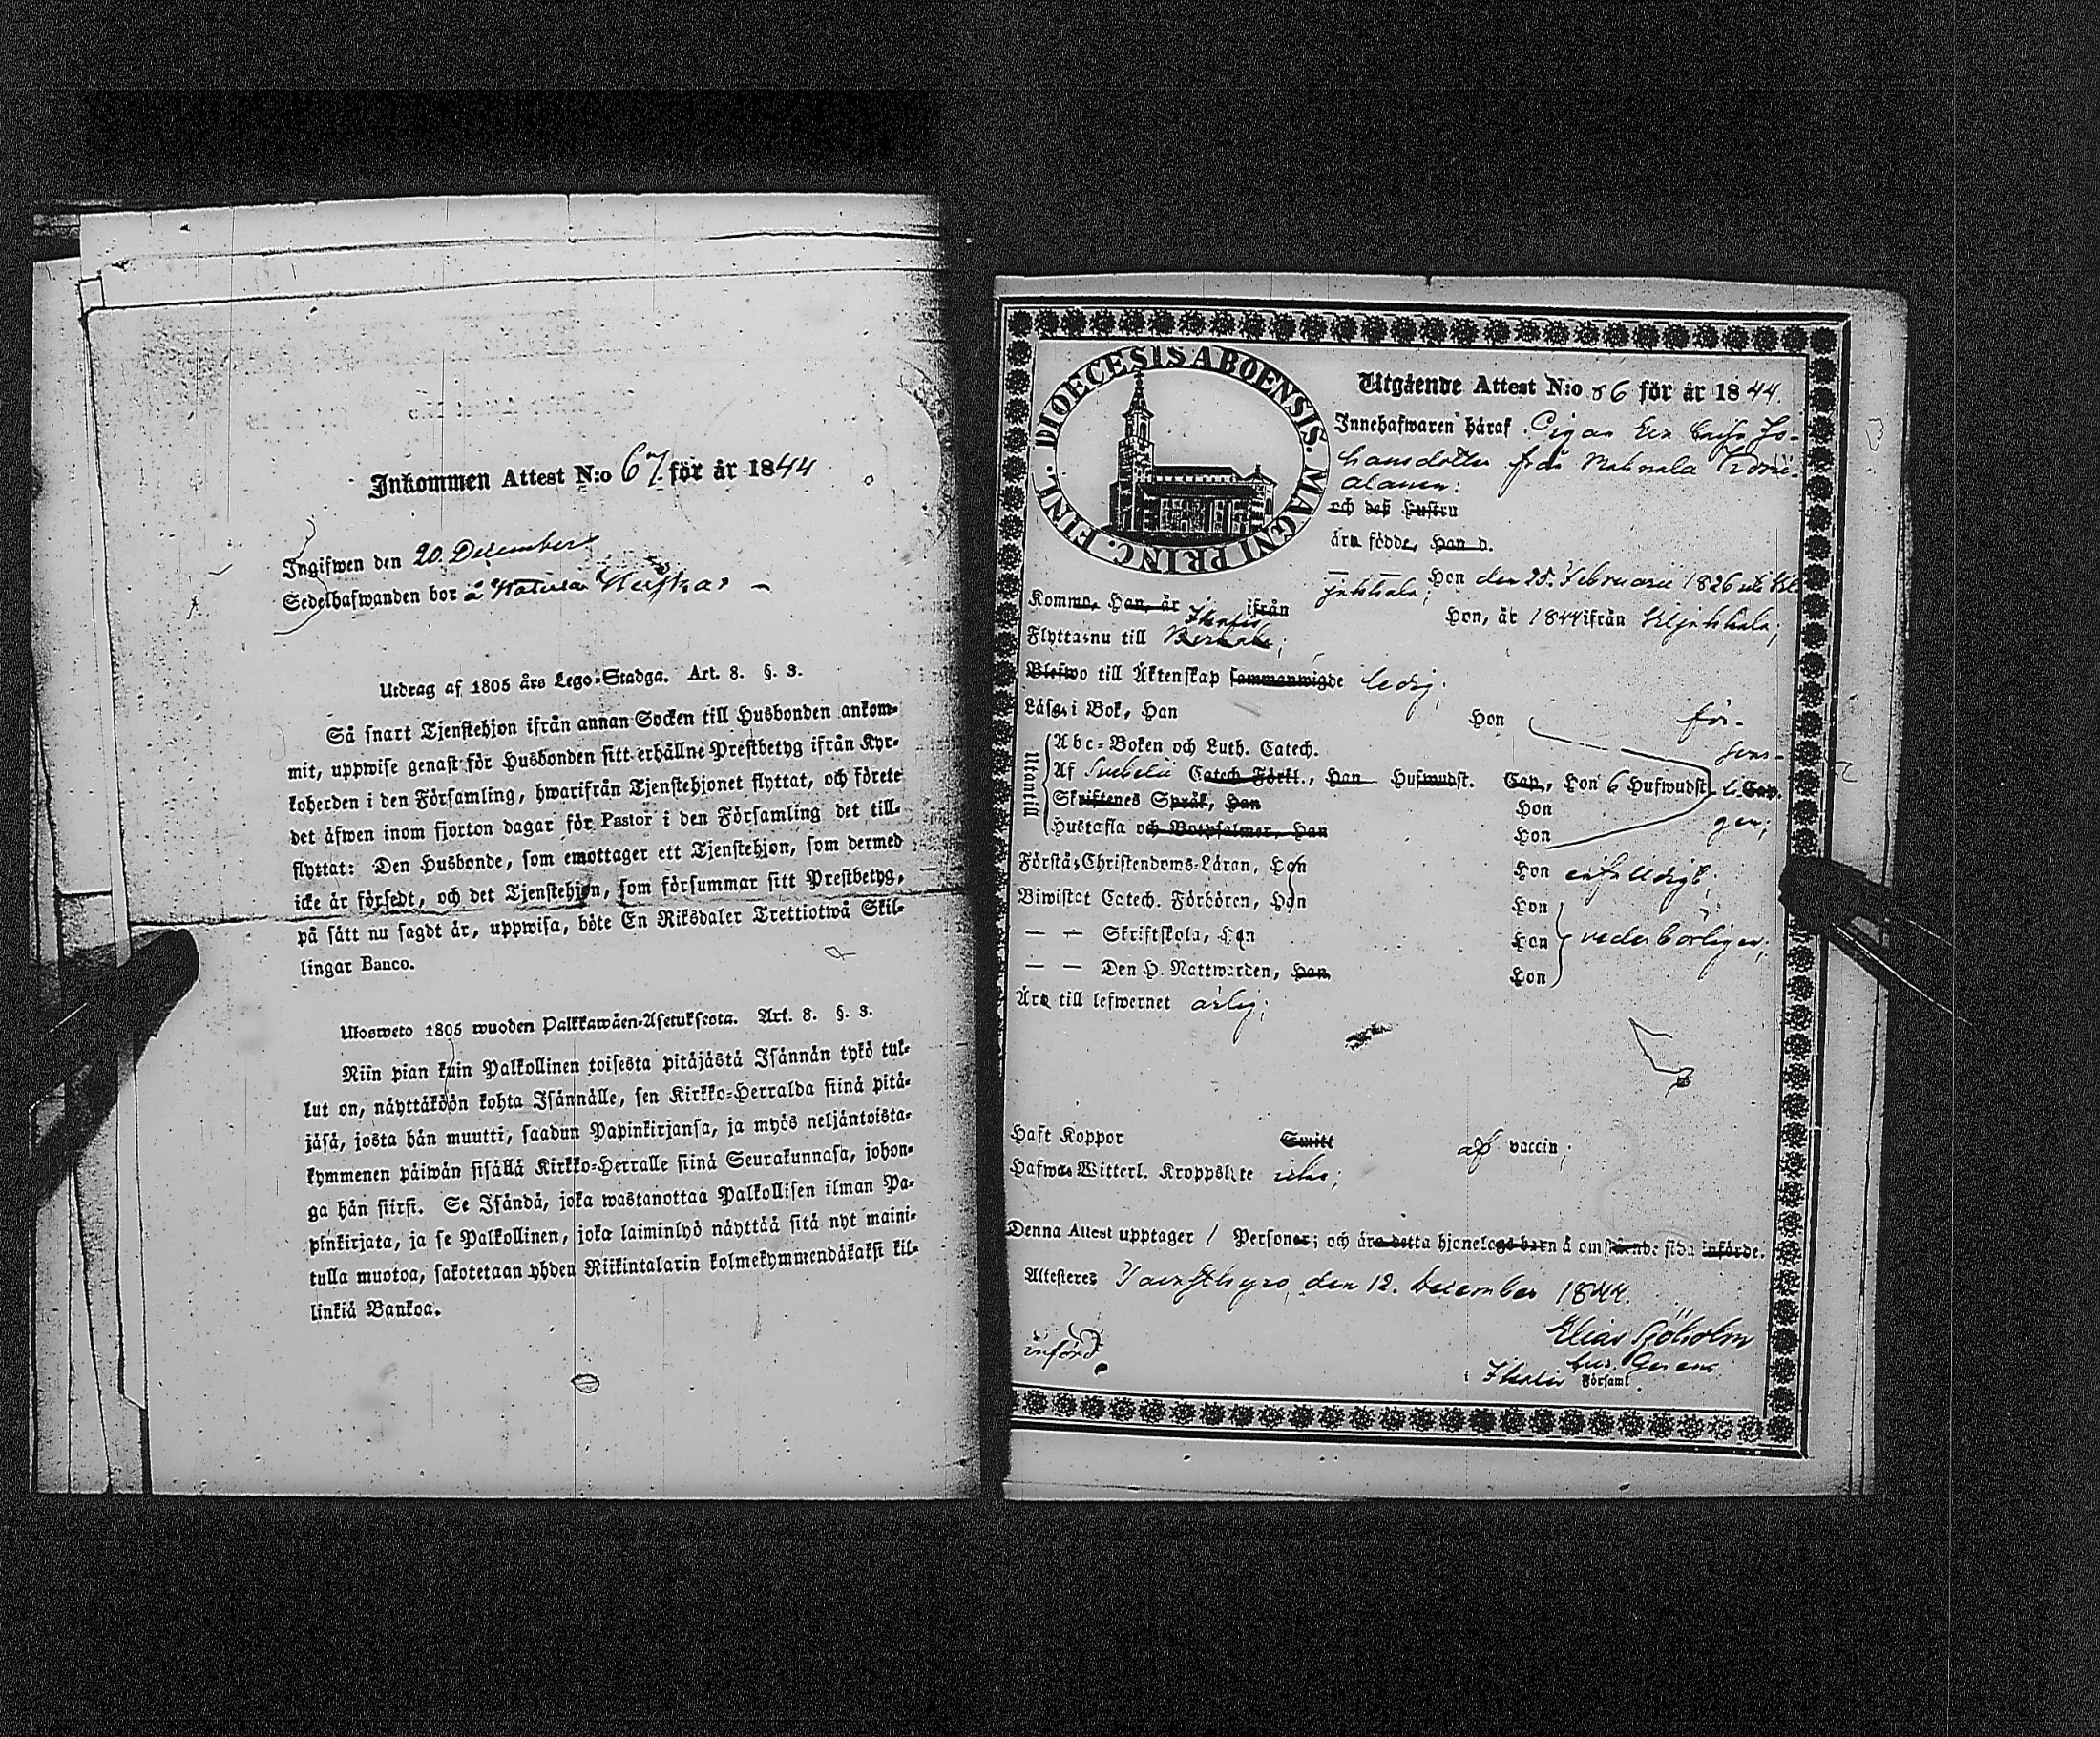 Inkommen Attest N:o 67 för år 1844
Ingifwen den 20. December
Sedelhafwanden bor å
Utdrag af 1805 års Lego-Stadga. Art. 8. §. 3.
Så snart Tjenstehjon ifrån annan Socken till Husbonden ankom-
mit, uppwise genast för Husbonden sitt erhållne Prestbetyg ifrån Kyr-
koherden i den Församling, hwarifrån Tjenstehjonet flyttat, och förete
det åfwen inom fjorton dagar för Pastor i den Församling det till-
flyttat: Den Husbonde, som emottager ett Tjenstehjon, som dermed
icke är försedt, och det Tjenstehjon, som försummar sitt Prestbetyg,
på sätt nu sagdt är, uppwisa, böte En Riksdaler Trettiotwå Skil-
lingar Banco.
Ulosweto 1805 wuoden Palkkawåen-Asetuksesta. Art. 8. §. 3.
Niin pian kuin Palkollinen toisesta pitäjästä Isännän tykö tul-
lut on, näyttäköön kohta Isännälle, sen Kirkko-Herralda siinä pitä-
jäsä, josta hän muutti, saadun Papinkirjansa, ja myös neljäntoista-
kymmenen päiwän sisällä Kirkko-Herralle siinä Seurakunnasa, johon-
ga hän siirsi. Se Isändä, joka wastanottaa Palkollisen ilman Pa-
pinkirjata, ja se Palkollinen, joka laiminlyö näyttää sitä nyt maini-
tulla muotoa, sakotetaan yhden Riikintalarin kolmekymmendäkaksi kil-
linkiä Bankoa.
DIOECESIS ABOENSIS. MAGNI PRINC. FINL.
Utgående Attest N:o 86 för år 1844.
Innehafwaren häraf Pigan Jo-
hansdotter från
och deß Hustru
äro födde, Han d.
— — Hon den 25. Februarii 1826 uti Kl
jakkala;
Komma, Han, år ifrån Hon, år 1844 ifrån
Flytta nu till Ikalis
Blefwo till Äktenskap sammanwigde ledig;
Läsa i Bok, Han Hon för-
Utantill
Abc-Boken och Luth. Catech. svar-
Af Svebelii Catech. Förkl., Han Hufwudst. Cap., Hon 6 Hufwudst. li Cap.
Skriftenes Språk, Han Hon
Hustafla och Botpsalmer, Han Hon gen;
Förstå Christendoms-Läran, Han Hon enfalldigt;
Biwistat Catech. Förhören, Han Hon
— — Skriftskola, Han Hon vederbörligen;
— — Den H. Nattwarden, Han Hon
Äro till lefwernet ärlig;
Haft Koppor Smitt af vaccin;
Hafwa Witterl. Kroppslyte utan;
Denna Attest upptager 1 Personer; och äro detta hjonelags barn å omstående sida införde.
Attesteres den 12. December 1844.
Elias Sjöholm
införd
i Ikalis Församl.